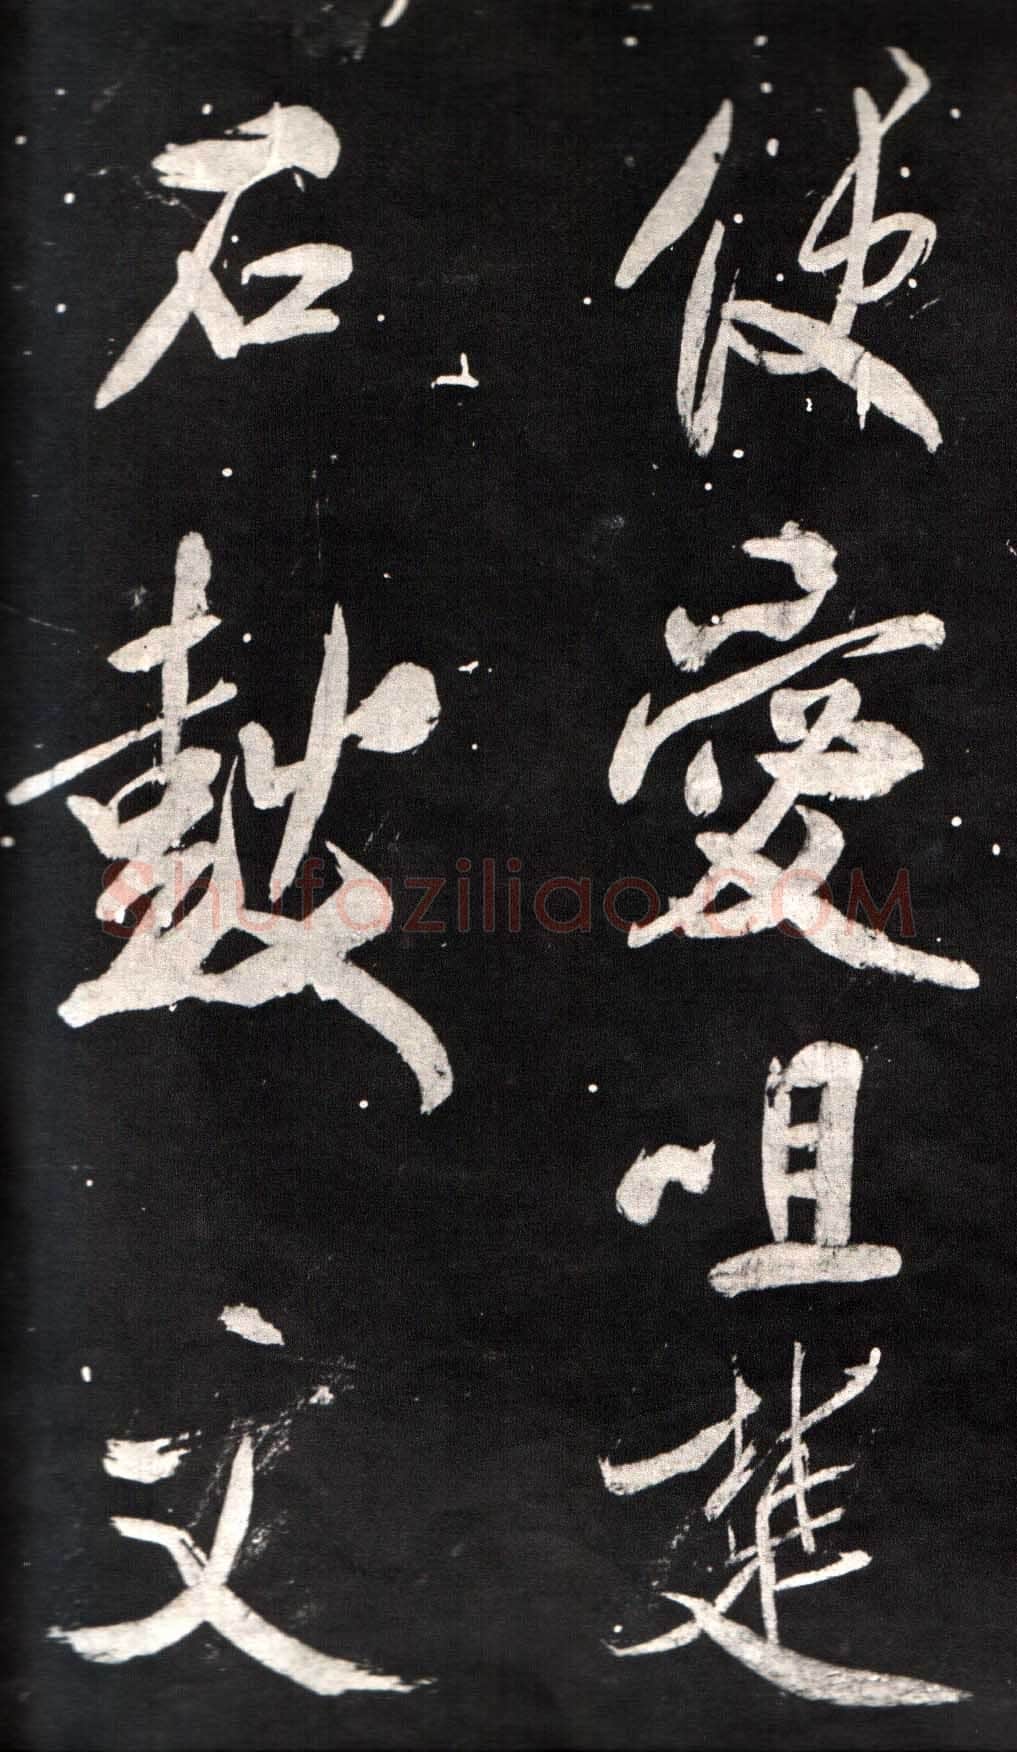 便愛咀楚
石鼓文
Shufaziliao.COM